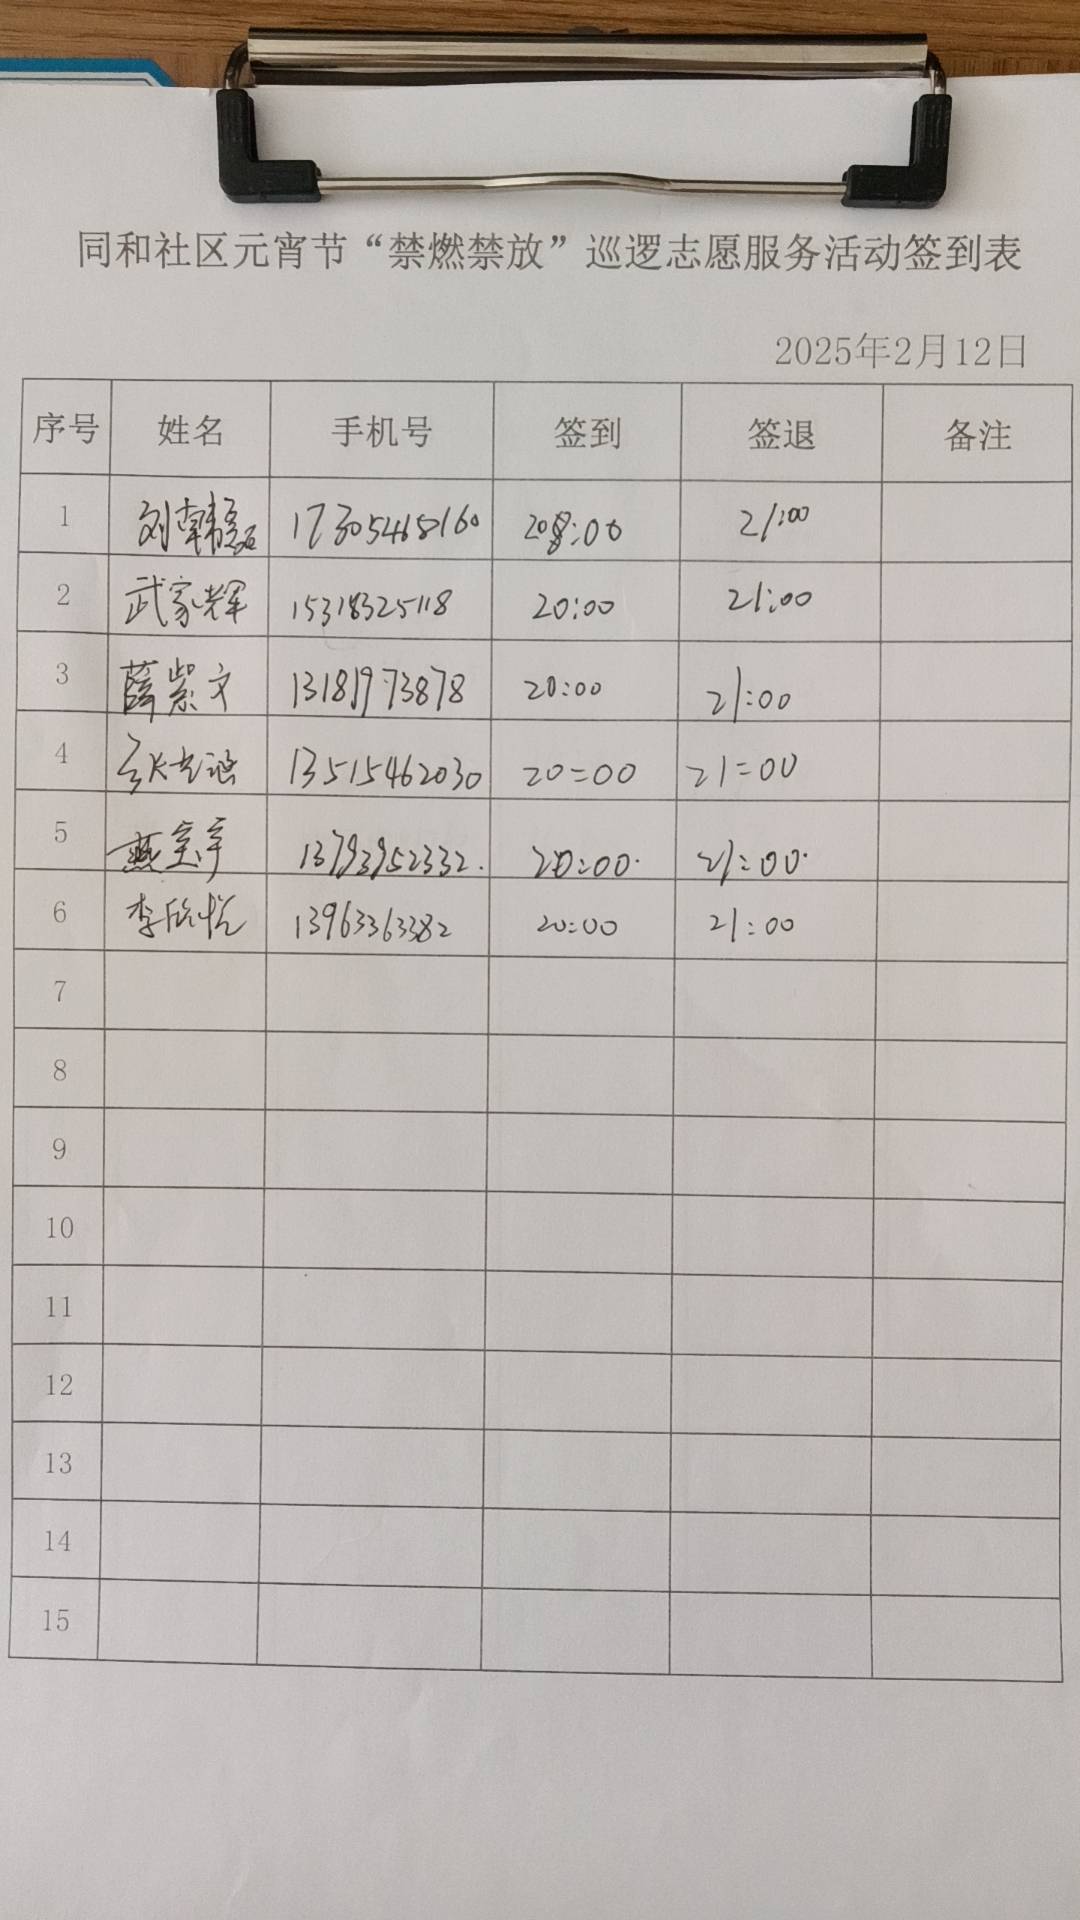 同和社区元宵节“禁燃禁放”巡逻志愿服务活动签到表
2025年2月12日
序号 姓名 手机号 签到 签退 备注
1 刘 17305468160 20:00 21:00
2 武家辉 15318325118 20:00 21:00
3 薛紫文 13181973878 20:00 21:00
4 张 13515462030 20:00 21:00
5 燕 13793952332. 20:00. 21:00.
6 李欣悦 13963363382 20:00 21:00
7
8
9
10
11
12
13
14
15